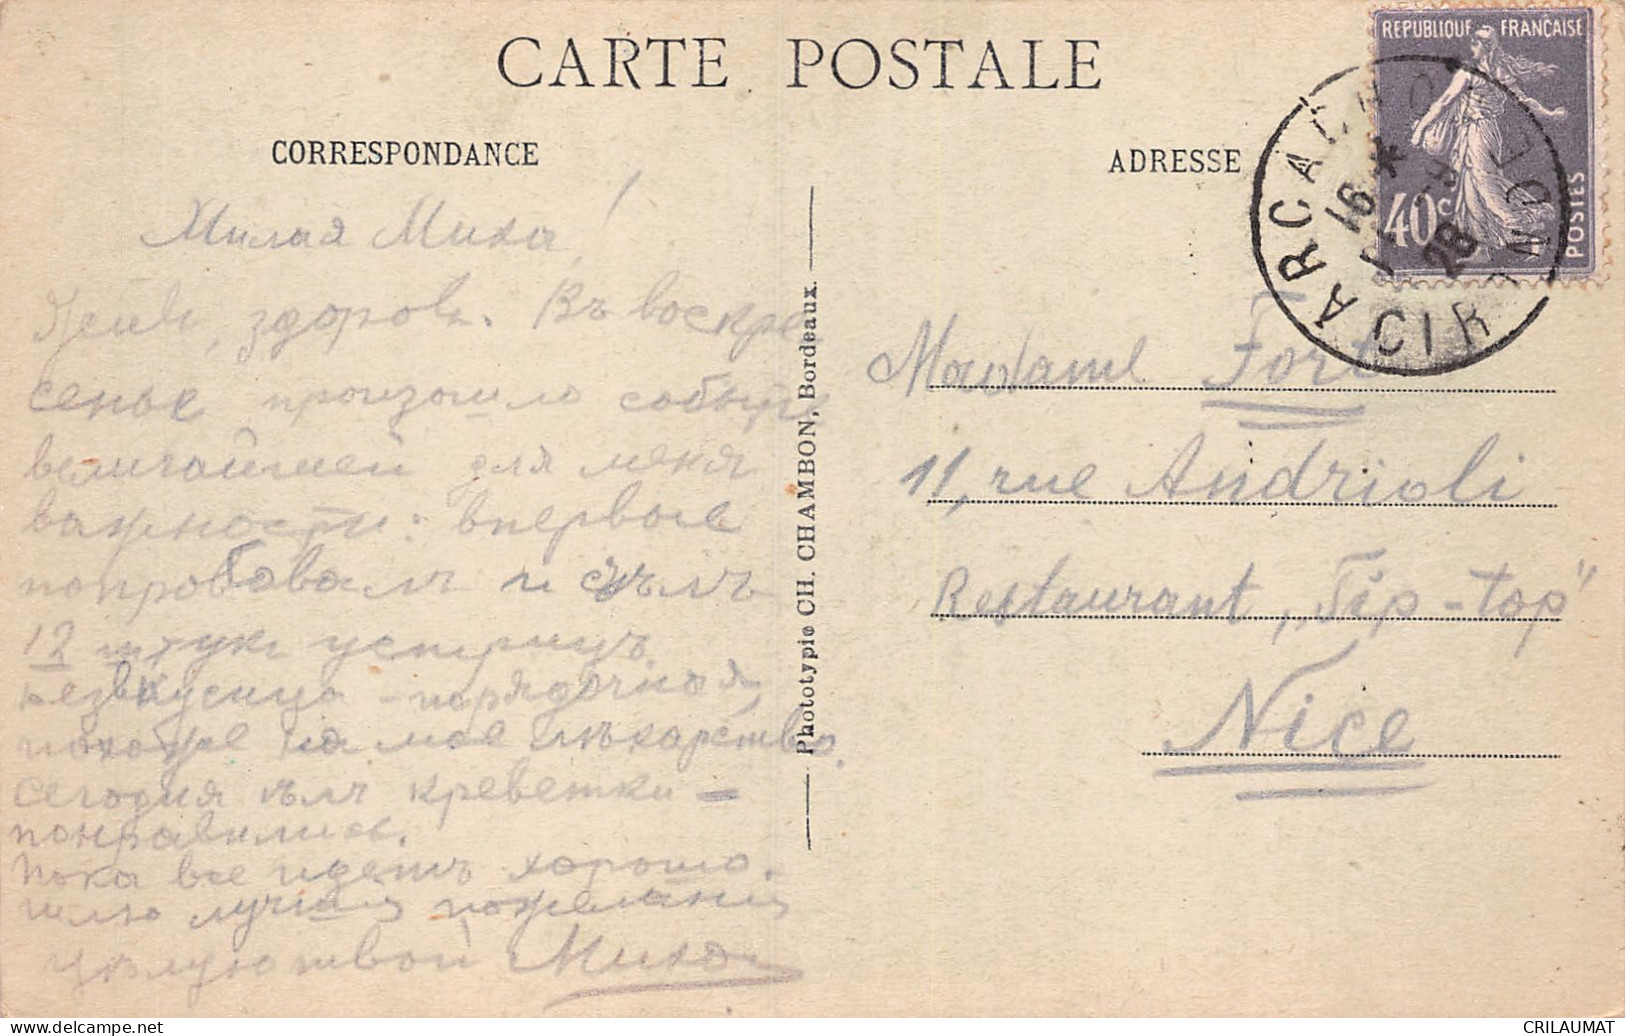 CARTE POSTALE
CORRESPONDANCE
ADRESSE
REPUBLIQUE FRANÇAISE
40c
POSTES
ARCACHON
16 *
-9
28
GIRONDE
Милая Миха!
здоровъ. Въ воскре
сенье произошло событіе
величайшей для меня
важности: впервые
попробовалъ и съѣлъ
12 штукъ устрицъ.
безвкусица - порядочная,
похоже на мое лѣкарство.
Сегодня ѣлъ креветки -
понравились.
Пока все идетъ хорошо.
Шлю лучшія пожеланія
Цѣлую твой Миха
Phototypie CH. CHAMBON, Bordeaux.
Madame Fort
11, rue Andrioli
Restaurant „Tip-top"
Nice
delcampe.net
CRILAUMAT